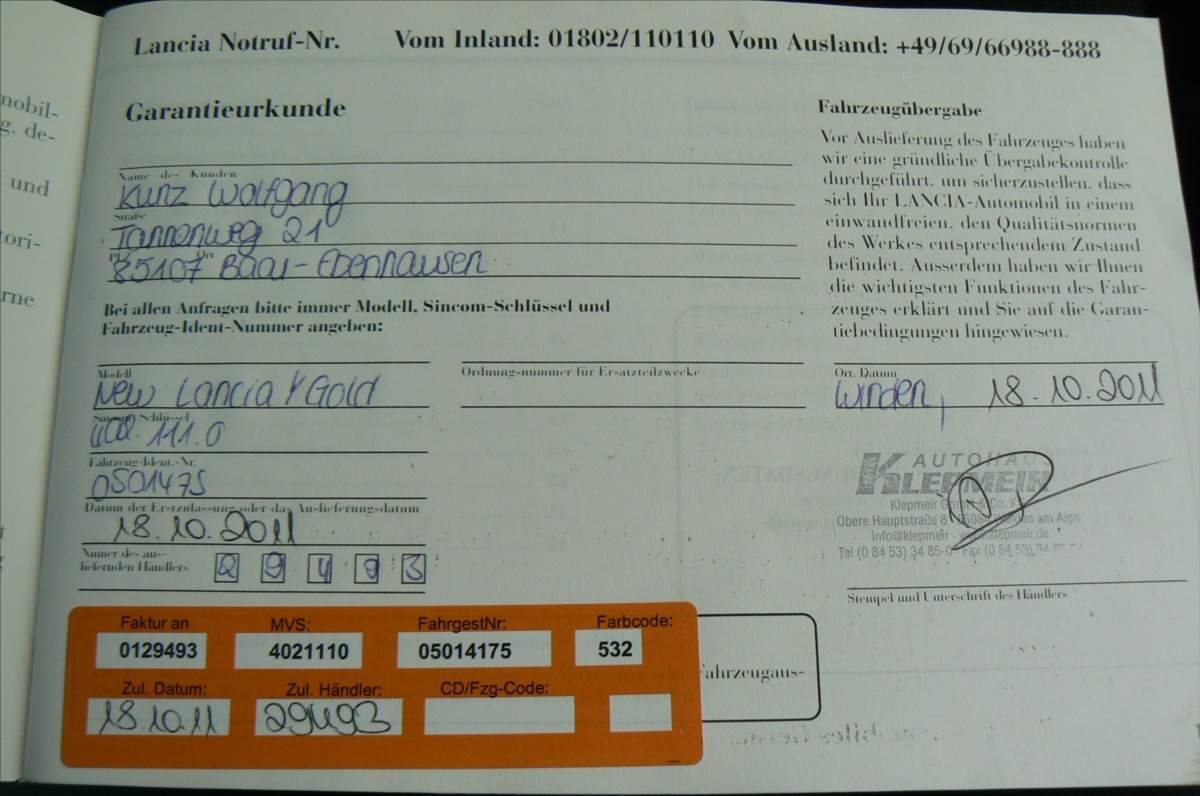 Lancia Notruf-Nr. Vom Inland: 01802/110110 Vom Ausland: +49/69/66988-888
mobil-
g, de-
und
tori-
rne
Garantieurkunde
Name des Kunden
Kunz Wolfgang
Straße
Tannenweg 21
PLZ Ort
85107 Baar-Ebenhausen
Bei allen Anfragen bitte immer Modell, Sincom-Schlüssel und
Fahrzeug-Ident-Nummer angeben:
Modell
New Lancia Y Gold
Ordnungsnummer für Ersatzteilzwecke
Sincom Schlüssel
402.111.0
Fahrzeug-Ident.-Nr.
0501475
Datum der Erstzulassung oder das Auslieferungsdatum
18.10.2011
Numer des aus-
liefernden Händlers 2 9 4 9 3
Fahrzeugübergabe
Vor Auslieferung des Fahrzeuges haben
wir eine gründliche Übergabekontrolle
durchgeführt, um sicherzustellen, dass
sich Ihr LANCIA-Automobil in einem
einwandfreien, den Qualitätsnormen
des Werkes entsprechendem Zustand
befindet. Ausserdem haben wir Ihnen
die wichtigsten Funktionen des Fahr-
zeuges erklärt und Sie auf die Garan-
tiebedingungen hingewiesen.
Ort, Datum
Winden, 18.10.2011
AUTOHAUS
KLEPMEIR
Klepmeir GmbH & Co. K
Obere Hauptstraße 8 85084 Winden am Aign
info@klepmeir - www.klepmeir.de
Tel (0 84 53) 34 85-0 Fax (0 84 53) 34
Stempel und Unterschrift des Händlers
Faktur an MVS: FahrgestNr: Farbcode:
0129493 4021110 05014175 532
Zul. Datum: Zul. Händler: CD/Fzg-Code:
18.10.11 29493
Fahrzeugaus-